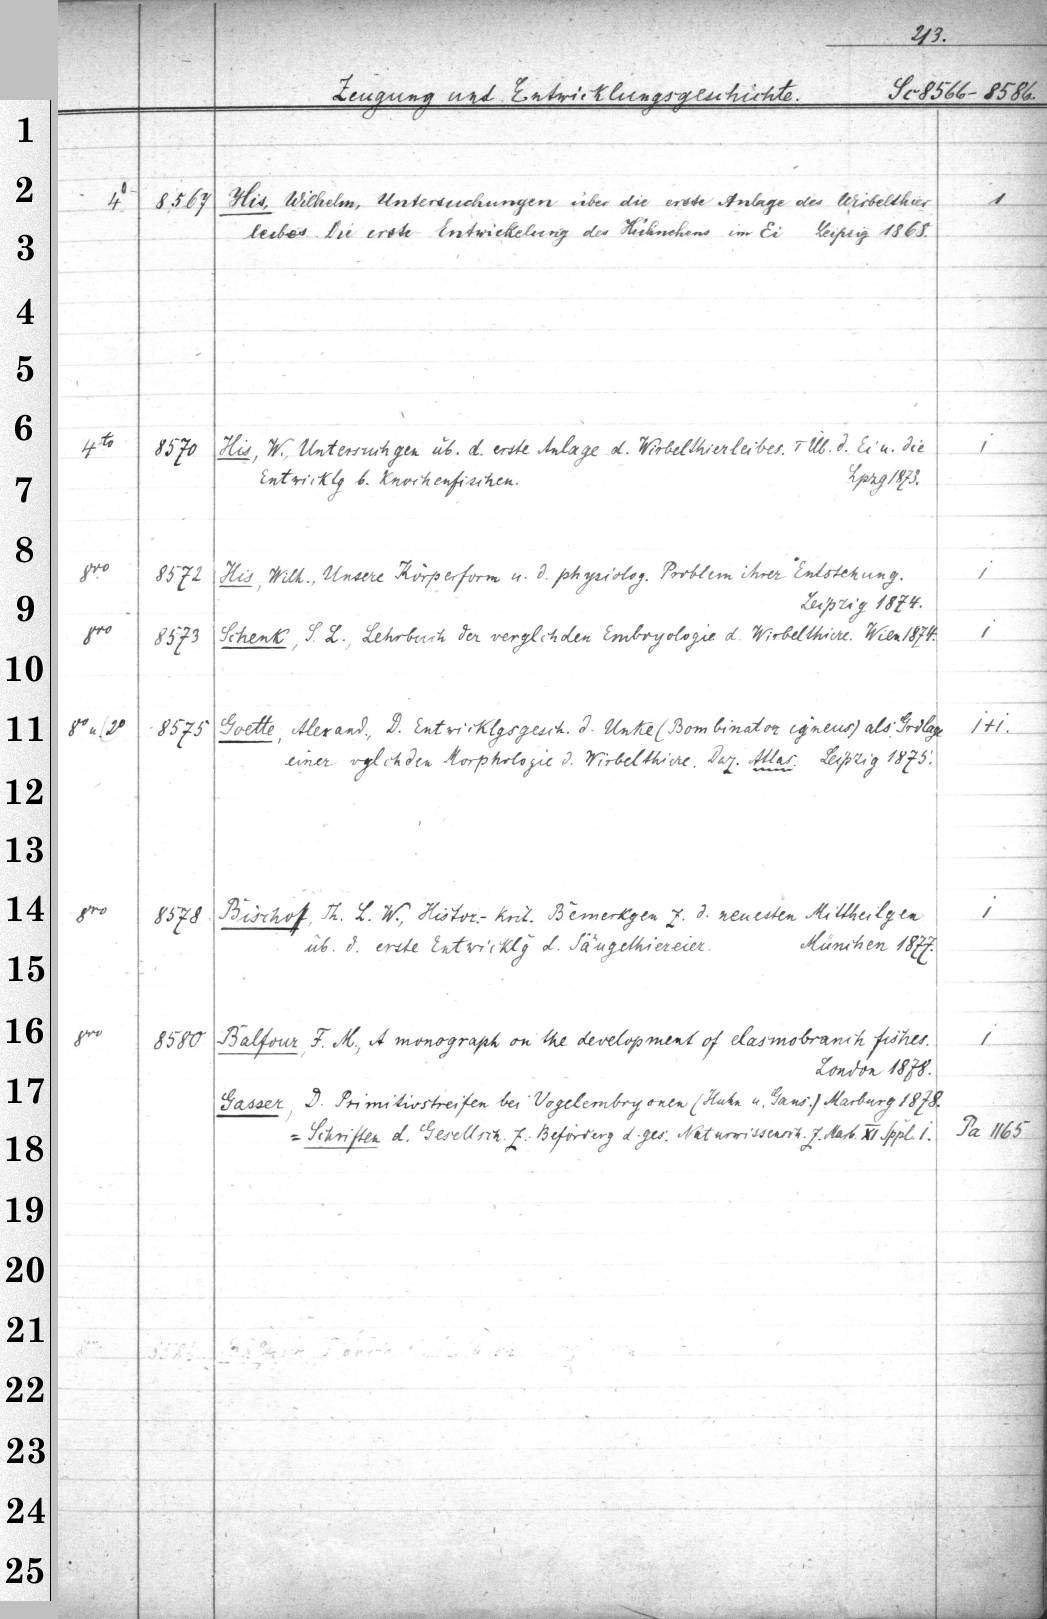 213.
Zeugung und Entwicklungsgeschichte. Sc 8566-8586.
1
2
3
4
5
6
7
8
9
10
11
12
13
14
15
16
17
18
19
20
21
22
23
24
25
4° 8567 His, Wilhelm, Untersuchungen über die erste Anlage des Wirbelthier 1
leibes. Die erste Entwickelung des Hühnchens im Ei Leipzig 1868.
4to 8570 His, W., Untersuchgen üb. d. erste Anlage d. Wirbelthierleibes. üb. d. Ei u. die i
Entwicklg b. Knochenfischen. Lpzg 1873.
8vo 8572 His, Wilh., Unsere Körperform u. d. physiolog. Problem ihrer Entstehung. i
Leipzig 1874.
8vo 8573 Schenk, S. L., Lehrbuch der verglchden Embryologie d. Wirbelthiere. Wien 1874. i
8° u. 2° 8575 Goette, Alexand., D. Entwicklgsgesch. d. Unke (Bombinator igneus) als Grdlage i+i.
einer vglchden Morphologie d. Wirbelthiere. Daz. Atlas. Leipzig 1875.
8vo 8578 Bischof, Th. L. W., Histor.-krit. Bemerkgen z. d. neuesten Mittheilgen i
üb. d. erste Entwicklg d. Säugethiereier. München 1877.
8vo 8580 Balfour, F. M., A monograph on the development of elasmobranch fishes. i
London 1878.
Gasser, D. Primitivstreifen bei Vogelembryonen (Huhn u. Gans.) Marburg 1878.
= Schriften d. Gesellsch. z. Beförderg d. ges. Naturwissensch. z. Marb. XI Sppl. 1. Pa 1165